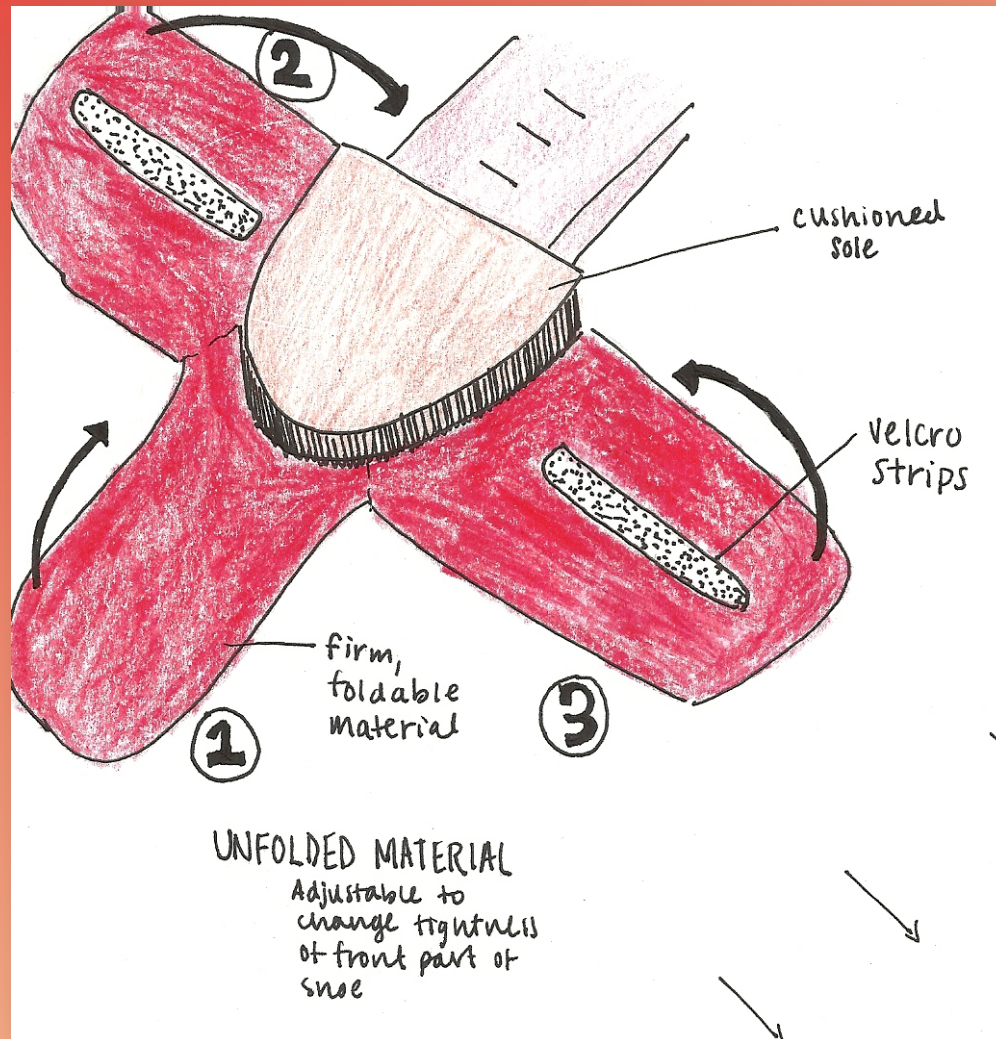 2
cushioned
sole
velcro
strips
firm,
foldable
material
1
3
UNFOLDED MATERIAL
Adjustable to
change tightness
of front part of
shoe